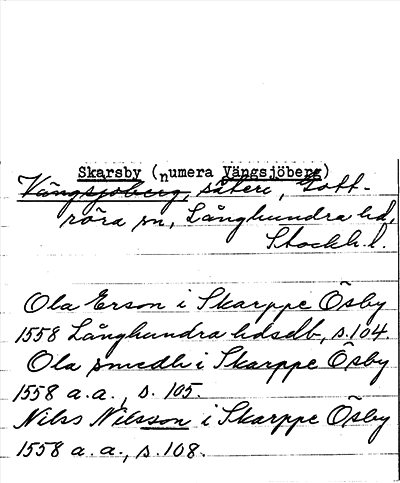 Skarsby (numera Vängsjöberg)
Vängsjöberg, säteri, Gott-
röra sn, Långhundra hd,
Stockh. l.
Ola Erson i Skarppe Ösby
1558 Långhundra hdsdb, s. 104.
Ola smedh i Skarppe Ösby
1558 a. a., s. 105.
Nils Nilsson i Skarppe Ösby
1558 a. a., s. 108.